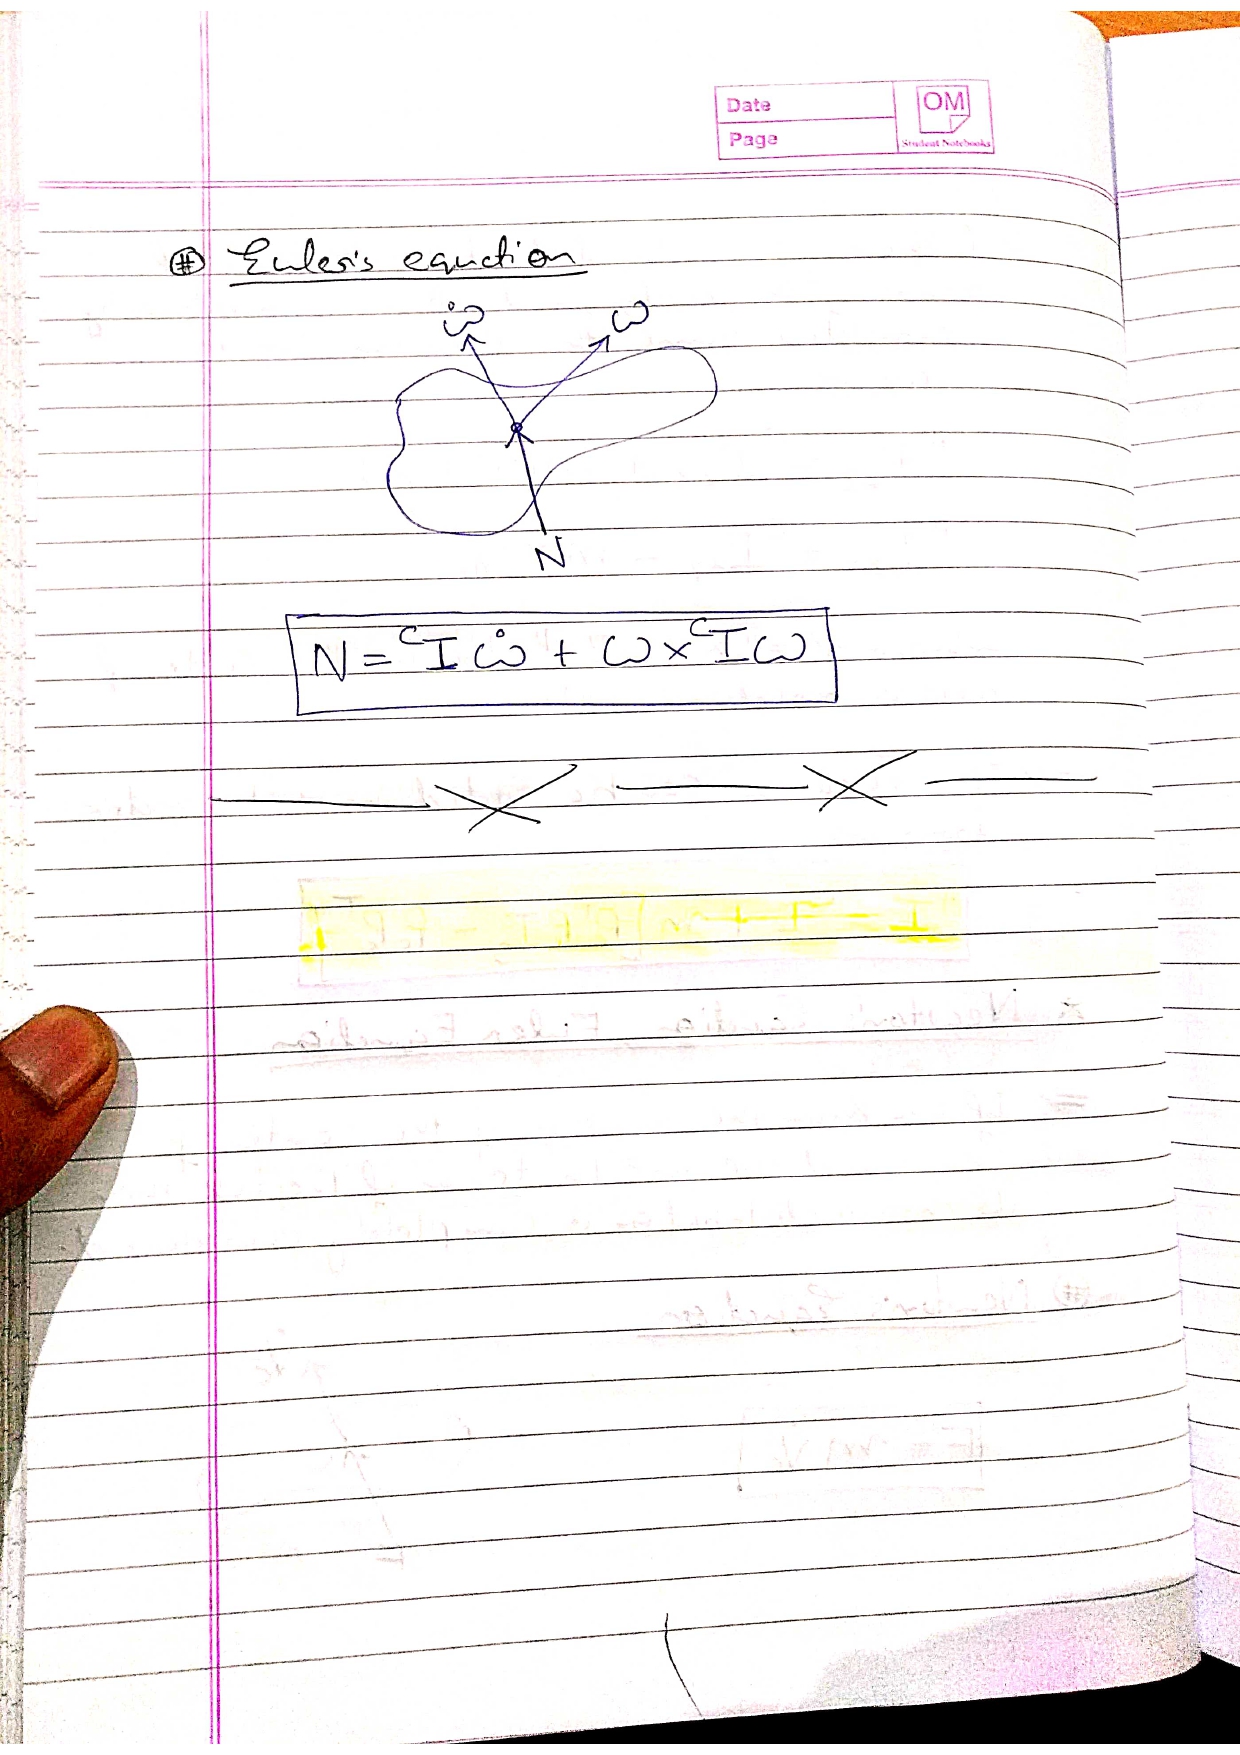 Date
Page
OM
Student Notebooks
# Euler's equation
ω̇ ω
N
N = ᶜI ω̇ + ω × ᶜI ω